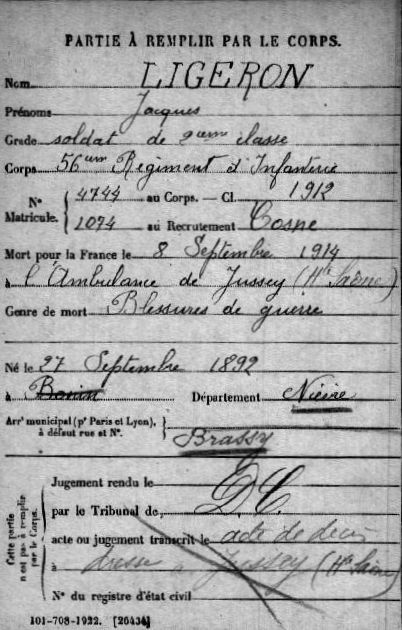 PARTIE À REMPLIR PAR LE CORPS.
Nom LIGERON
Prénoms Jacques
Grade soldat de 2eme classe
Corps 56eme Regiment d'Infanterie
N° Matricule. { 4744 au Corps. — Cl. 1912
1074 au Recrutement Cosne
Mort pour la France le 8 Septembre 1914
à l'Ambulance de Jussey (Hte Saône)
Genre de mort Blessures de guerre
Né le 27 Septembre 1892
à Département Nièvre
Arrt municipal (pr Paris et Lyon), à défaut rue et N°. } Brassy
Cette partie n'est pas à remplir par le Corps.
Jugement rendu le
par le Tribunal de D.C
acte ou jugement transcrit le acte de décès
à dressé à Jussey (Hte Saône)
N° du registre d'état civil
101-708-1922. [26434]